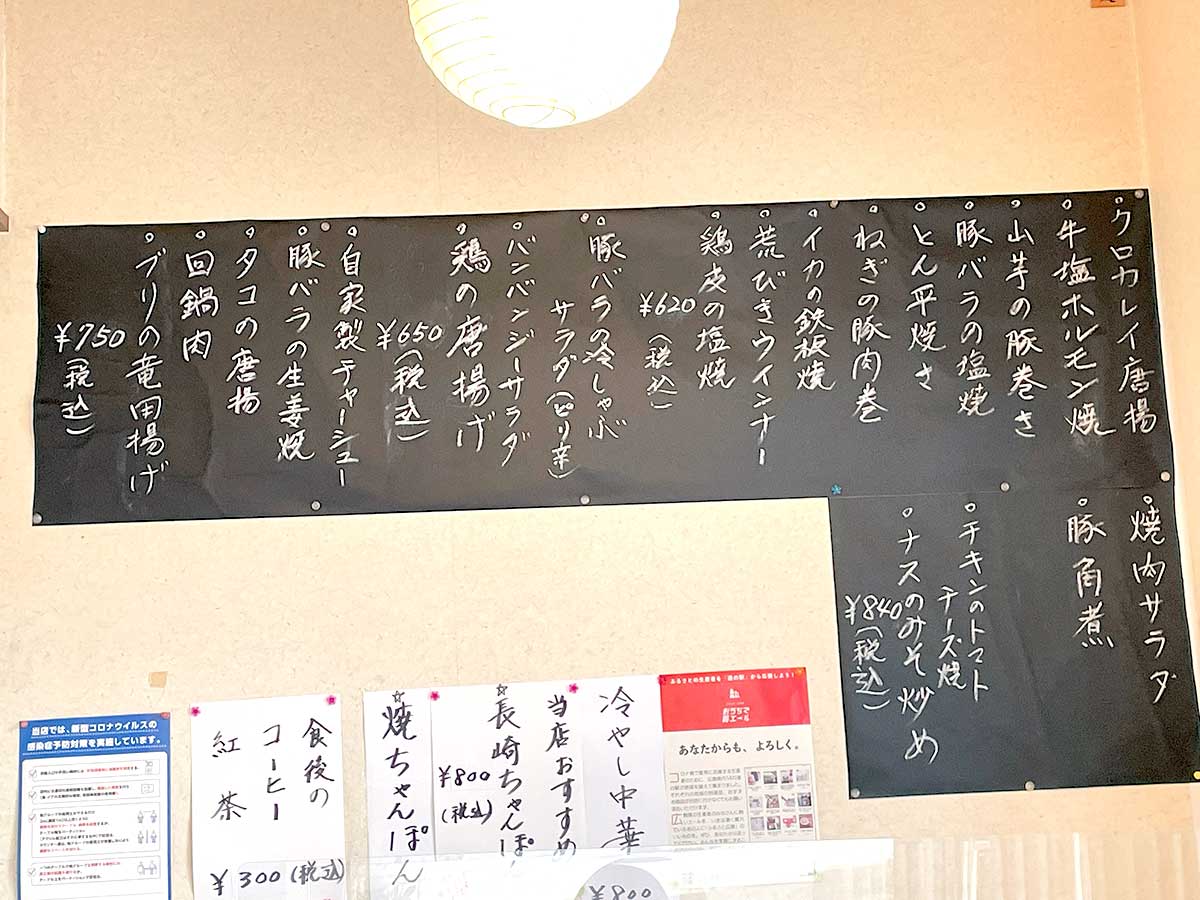 クロカレイ唐揚
牛塩ホルモン焼
山芋の豚巻き
豚バラの塩焼
とん平焼き
ねぎの豚肉巻
イカの鉄板焼
荒びきウインナー
鶏皮の塩焼
¥620(税込)
豚バラの冷しゃぶ
サラダ(ピリ辛)
バンバンジーサラダ
鶏の唐揚げ
¥650(税込)
自家製チャーシュー
豚バラの生姜焼
タコの唐揚
回鍋肉
ブリの竜田揚げ
¥750(税込)
焼肉サラダ
豚角煮
チキンのトマト
チーズ焼
ナスのみそ炒め
¥840(税込)
ふるさとの生産者を「道の駅」から応援しよう!
おうちで
あなたからも、よろしく。
冷やし中華
¥800
当店おすすめ
☆長崎ちゃんぽん
¥800
(税込)
☆焼ちゃんぽん
食後の
コーヒー
紅茶
¥300(税込)
当店では、新型コロナウイルスの
感染症予防対策を実施しています。